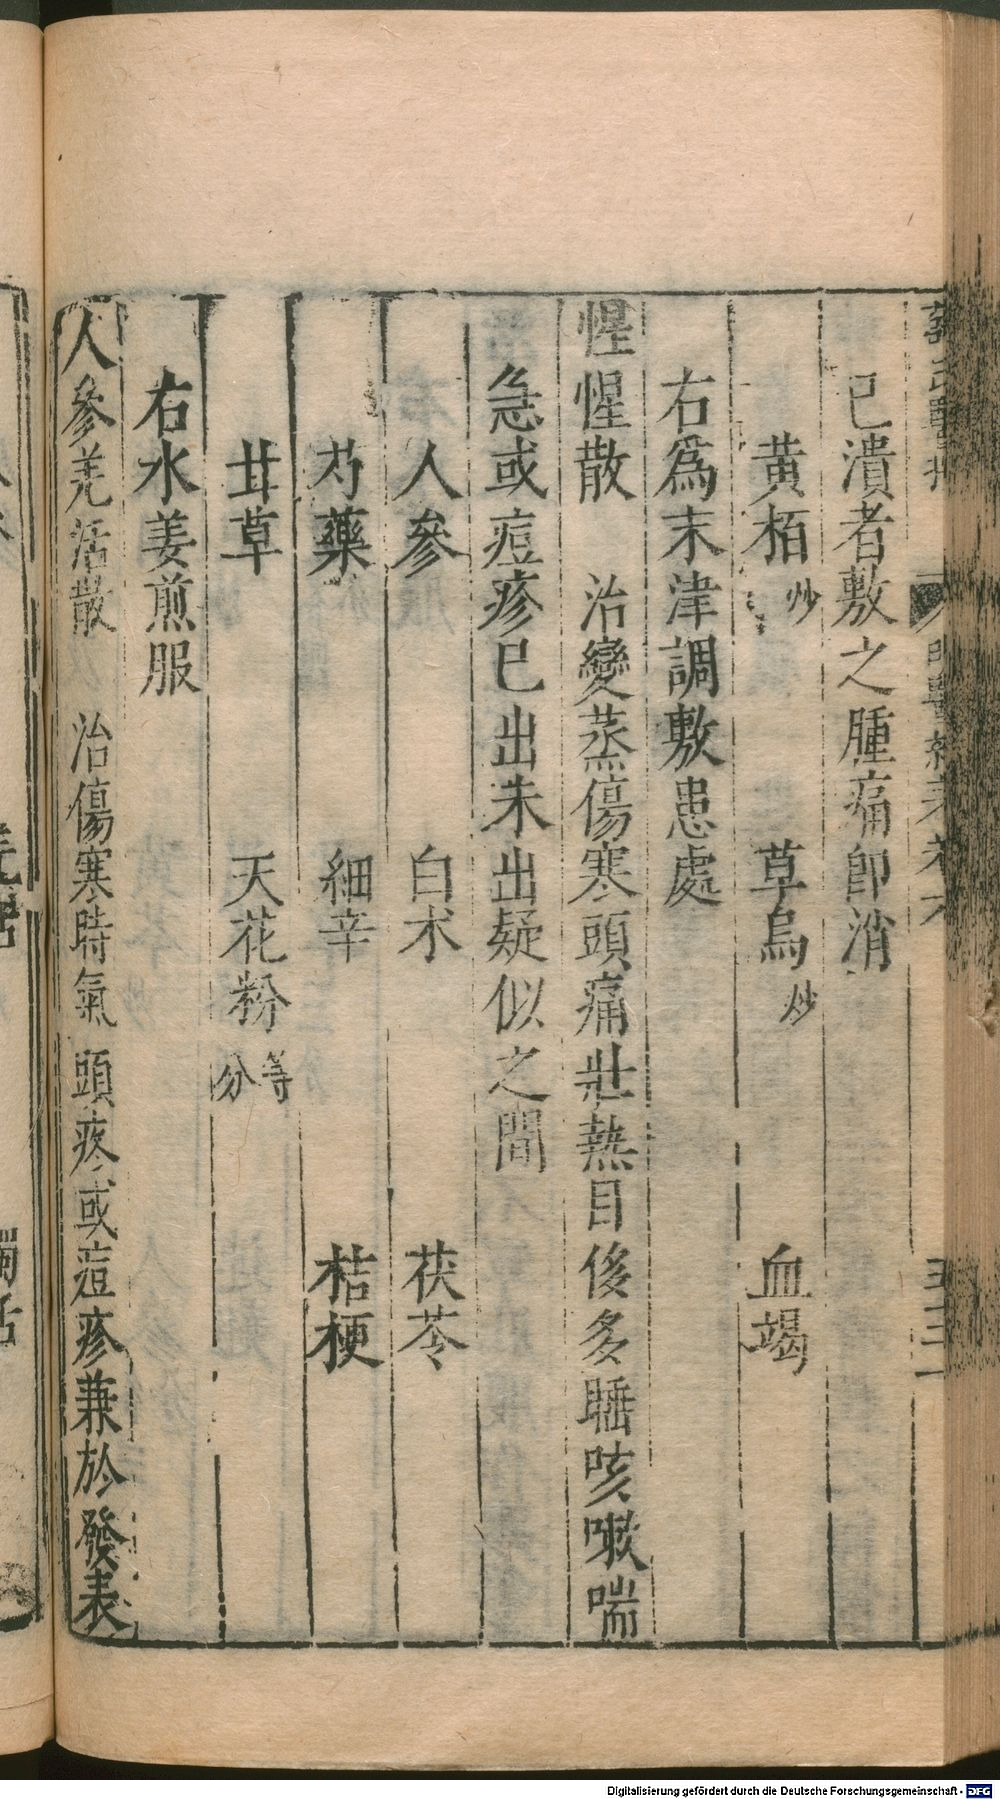 已潰者敷之腫痛卽消
黄栢炒　草烏炒　血竭
右爲末津調敷患處
惺惺散　治變蒸傷寒頭痛壯熱目俊多睡咳嗽喘
急或痘疹已出未出疑似之間
人參　白术　茯苓
芍藥　細辛　桔梗
甘草　天花粉等分
右水姜煎服
人參羌活散　治傷寒時氣頭疼或痘疹兼於發表
Digitalisierung gefördert durch die Deutsche Forschungsgemeinschaft - DFG